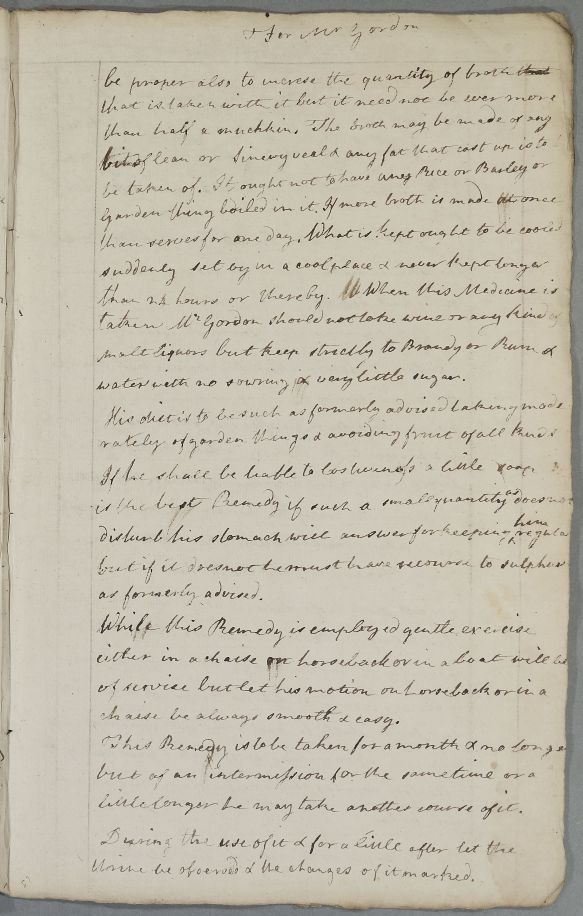 For Mr Gordon
be proper also to increse the quantity of broth that
that is taken with it but it need not be ever more
than half a muchkin. The broth may be made of any
bit of lean or Sinewy veal & any fat that cast up is to
be taken of. It ought not to have any Rice or Barley or
Garden thing boiled in it. If more broth is made at once
than serves for one day. What is kept ought to be cooled
suddenly set by in a cool place & never kept longer
than 24 hours or thereby. When this Medicine is
taken Mr Gordon should not take wine or any kind of
malt liquors but keep strictly to Brandy or Rum &
water with no sowring & very little sugar.
His diet is to be such as formerly advised taking mode
rately of garden things & avoiding fruit of all kinds
If he shall be liable to costiveness a little soap
is the best Remedy if such a small quantity as does not
disturb his stomach will answer for keeping him regular
but if it does not he must have recourse to sulpher
as formerly advised.
While this Remedy is employed gentle exercise
either in a chaise on horseback or in a boat will be
of servise but let his motion on horseback or in a
chaise be always smooth & easy.
This Remedy is to be taken for a month & no longer
but after an intermission for the same time or a
little longer he may take another course of it.
During the use of it & for a little after let the
Urine be observed & the changes of it marked.